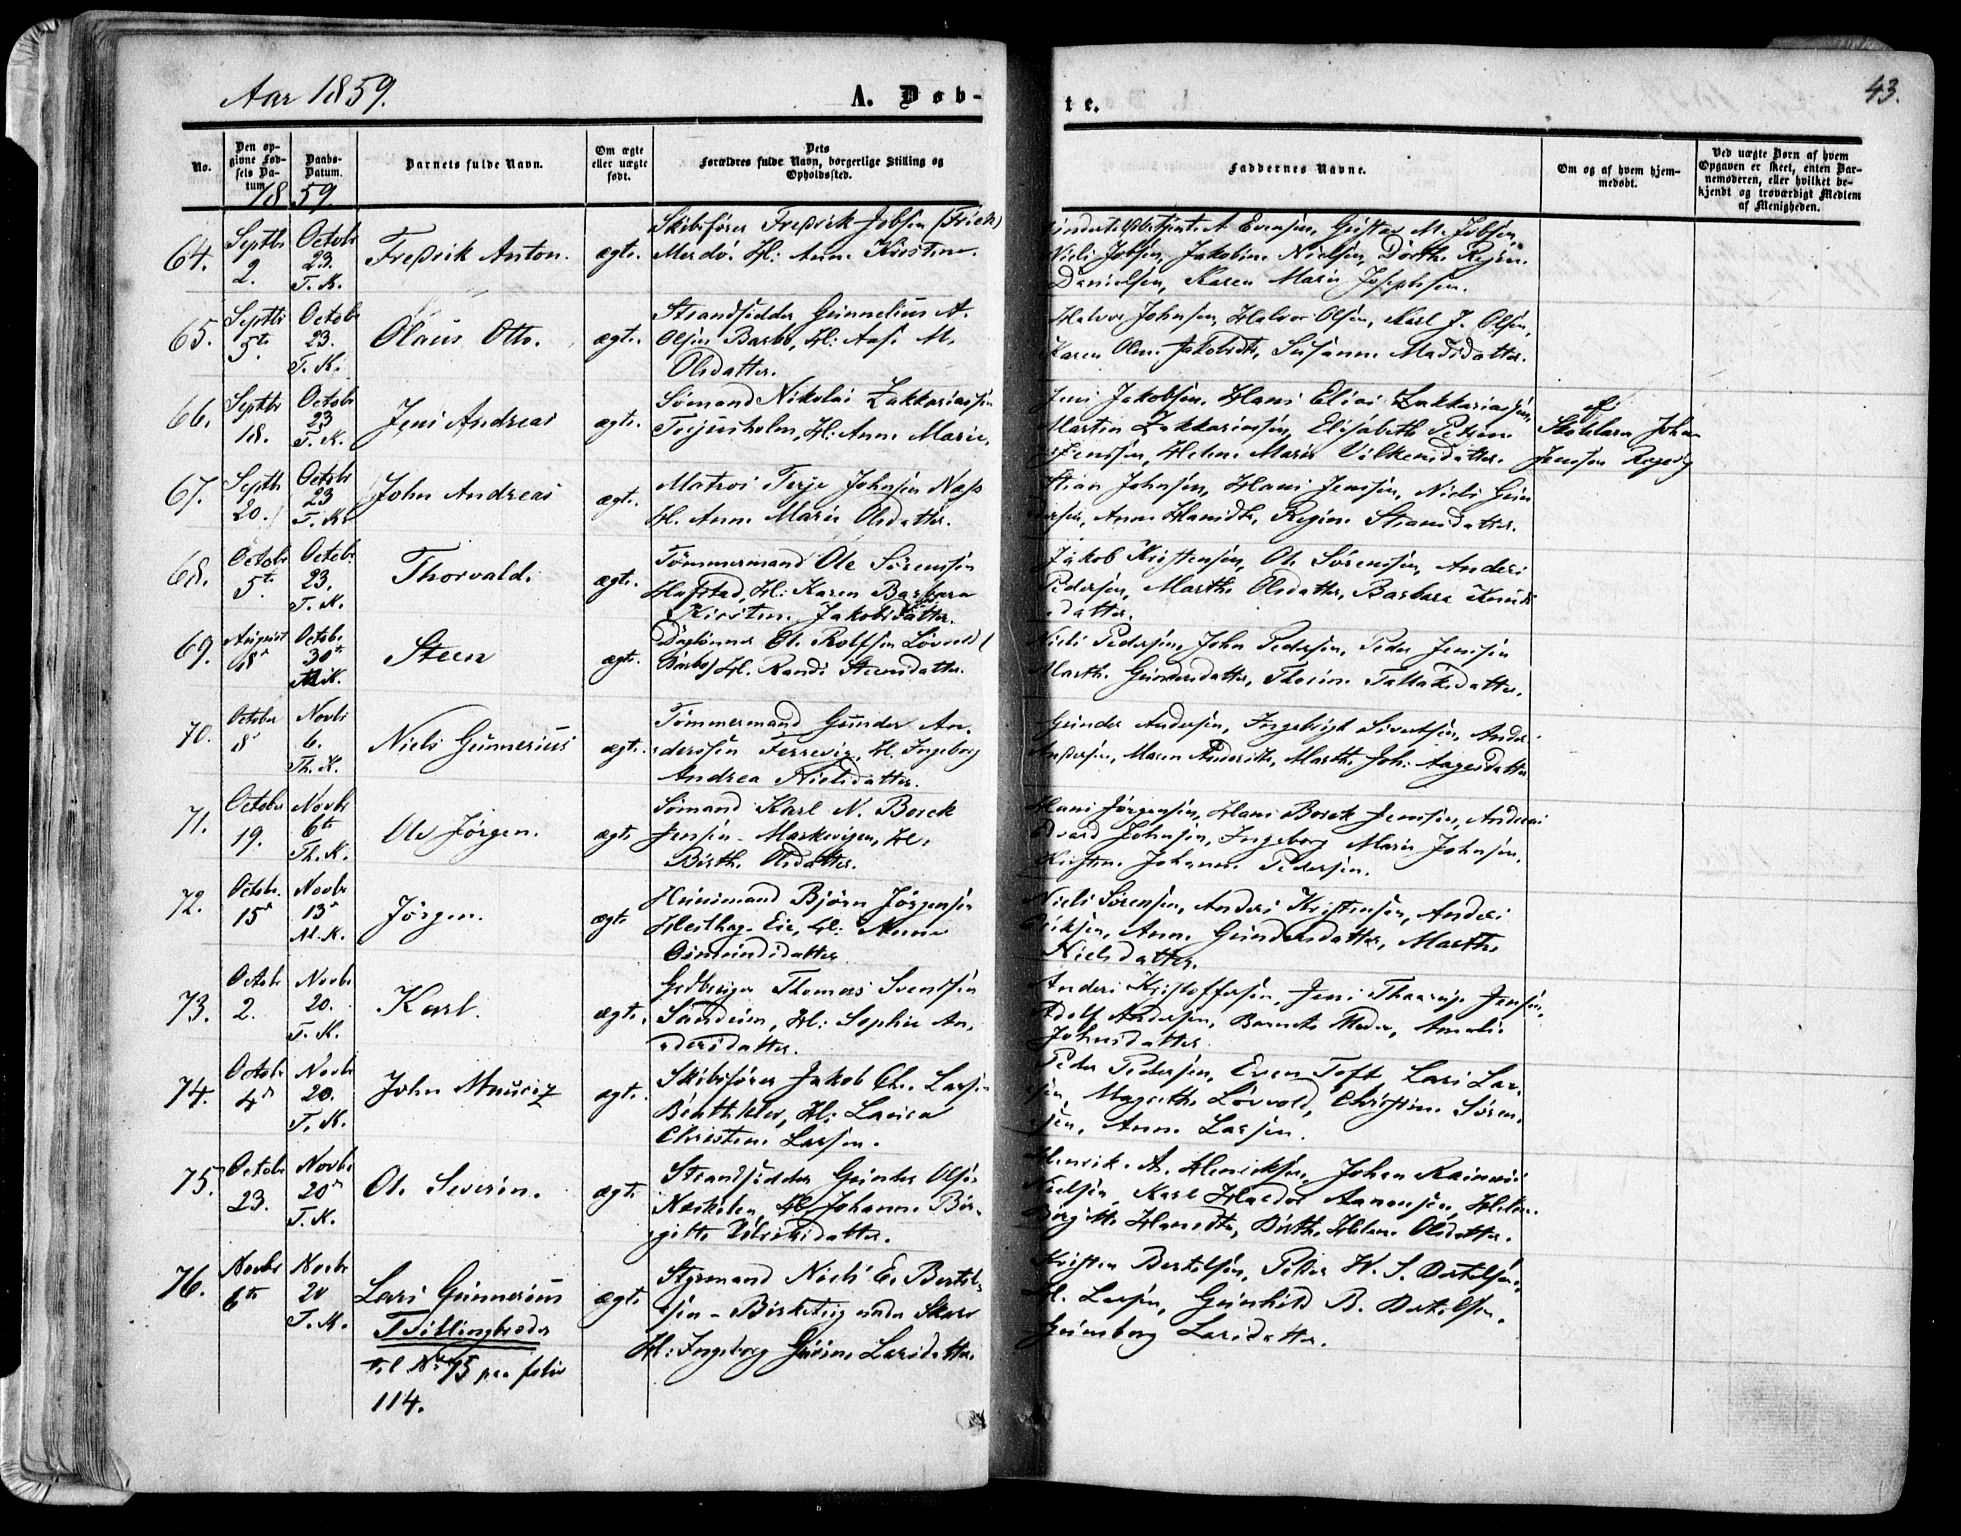 Aar 1859.
A. Døb-
te.
43.
No.
Den op-
givne Fød-
sels Da-
tum
Daabs-
Datum.
Barnets fulde Navn.
Om ægte
eller uægte
født.
Dets
Forældres fulde Navn, borgerlige Stilling og
Opholdssted.
Faddernes Navne.
Om og af hvem hjem-
medøbt.
Ved uægte Børn af hvem
Opgaven er skeet, enten Bar-
nemoderen, eller hvilket be-
kjendt og troværdigt Medlem
af Menigheden.
1859
64.
Septbr
2.
Octobr
23.
T. K.
Fredrik Anton.
ægte.
Skibsfører Fredrik Jobsen
Merdø. H: Anne Kirstine.
Evensen, Gustav M. Jobsen,
Niels Jobsen, Jakobine Nielsen, Dorthe
Danielsen, Karen Marie Josephsen.
65.
Septbr
5te
Octobr
23.
T. K.
Olaus Otto.
ægte.
Strandsidder Gunnelius A.
Olsen Barbo, H: Aase M.
Olsdatter.
Halvor Johnsen, Halvor Olsen, Karl J. Olsen,
Karen Oline Jakobsdtr, Susanne Madsdatter.
66.
Septbr
18.
Octobr
23
T. K.
Jens Andreas
ægte.
Sømand Nikolai Zakkariassen
H: Anne Marie.
Jens Jakobsen, Hans Elias Zakkariassen,
Martin Zakkariassen, Elisabeth
Jenssen, Helene Marie Vilkensdatter.
af
Skolelærer Johan
Jenssen
67.
Septbr
20.
Octobr
23
T. K.
John Andreas
ægte.
Matros Terje Johnsen Næs
H. Anne Marie Olsdatter.
Stian Johnsen, Hans Jenssen, Niels Gun
Anne Hansdtr, Regine
68.
Octobr
5te
Octobr.
23.
T. K.
Thorvald.
ægte.
Tømmermand Ole Sørenssen
Hafstad, H: Karen Barbara
Kirstine Jakobsdatter.
Jakob Kristensen, Ole Sørenssen, Anders
Pedersen, Marthe Olsdatter, Barbara Knuds
datter.
69.
August
18de
Octobr.
30te
Steen
ægte.
Daglønner Ol. Rolfsen Løvold (
Barbo) H. Randi Steensdatter.
Niels Pedersen, John Pedersen, Peder Jenssen
Marthe Gundersdatter, Thorine Tallaksdatter.
70.
October
8de
Novbr
6.
Th. K.
Niels Gunnerius
ægte.
Tømmermand Gunder An-
derssen Fervevig, H. Ingeborg
Andrea Nielsdatter.
Gunder Andersen, Ingebrigt Sivertsen, Anders
Andersen, Maren Andersdtr, Marthe Joh: Aagesdatter
71.
October
19.
Novbr
6te
Th. K.
Ole Jørgen.
ægte.
Sømand Karl N. Borck
Jensen - Markevigen, H:
Birthe Olsdatter.
Hans Jørgensen, Hans Borck Jenssen, Andreas
Johnsen, Ingeborg Marie Johnsen,
Kirstine Johanne Pedersen.
72.
Octobr.
15de
Novbr
13de
Jørgen.
ægte
Huusmand Bjørn Jørgensen
Eie, H:
Osmundsdatter
Niels Sørensen, Anders Kristensen, Anders
Eriksen, Anne Gundersdatter, Marthe
Nielsdatter.
73.
Octobr
2.
Novbr
20.
T. K.
Karl.
ægte.
Thomas Svendsen
H: Sophie An-
dersdatter.
Anders Kristoffersen, Jens Jensen,
Adolf Andersen, Barnets Moder, Amalie
Johnsdatter
74.
Octobr
4de
Novbr
20.
T. K.
John Mauritz
ægte.
Skibsfører Jakob Chr. Larsen
H: Laura
Christine Larsen.
Peder Pedersen, Even Toft Lars Lar-
sen, Magrethe Løvold, Christine Søren-
sen, Anne Larsen.
75.
Octobr
23.
Novbr
20de
T. K.
Ole Severin.
ægte
Strandsidder Gunder Olsen
H. Johanne Bir-
gitte Ulriksdatter.
Henrik A. Henriksen, Johan
Nielsen, Karl Haldor Aanonsen, Helene
Birgitte Hansdtr, Birthe Helene Olsdatter.
76.
Novbr
6te
Novbr
20
T. K.
Lars Gunnerius
Tvillingbroder
til No. 75 paa folio
114.
ægte
Styrmand Niels E. Bertel-
sen - under
H: Ingeborg Larsdatter.
Kristen Bertelsen, Peder W. S. Bertelsen,
H. Larsen, Gunhild B. Bertelsen,
Gunborg Larsdatter.